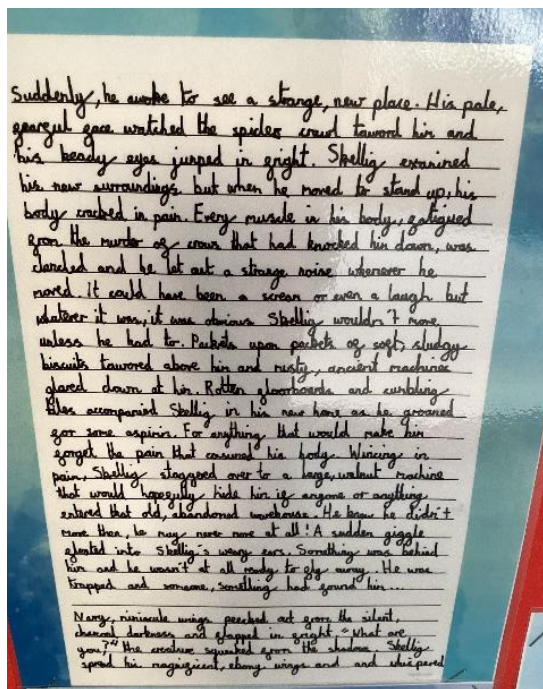 Suddenly, he awoke to see a strange, new place. His pale,
fearful face watched the spider crawl toward him and
his beady eyes jumped in fright. Skellig examined
his new surroundings but when he moved to stand up, his
body cracked in pain. Every muscle in his body, fatigued
from the murder of crows that had knocked him down, was
clenched and he let out a strange noise whenever he
moved. It could have been a scream or even a laugh but
whatever it was, it was obvious Skellig wouldn't move
unless he had to. Packets upon packets of soft, sludgy
biscuits towored above him and rusty, ancient machines
glared down at him. Rotten floorboards and
tiles accompanied Skellig in his new home as he groaned
for some aspirin. For anything that would make him
forget the pain that his body. Wincing in
pain, Skellig staggered over to a large, walnut machine
that would hopefully hide him if anyone or anything
entered that old, abandoned warehouse. He knew he didn't
move then, he may never move at all! A sudden giggle
floated into Skellig's weary ears. Something was behind
him and he wasn't at all ready to fly away. He was
trapped and someone, something had found him...
Navy, miniscule wings peeked out from the silent,
charcoal darkness and flapped in fright. "What are
you?" the creature squeaked from the shadows. Skellig
spread his magnificent, ebony wings and and whispered